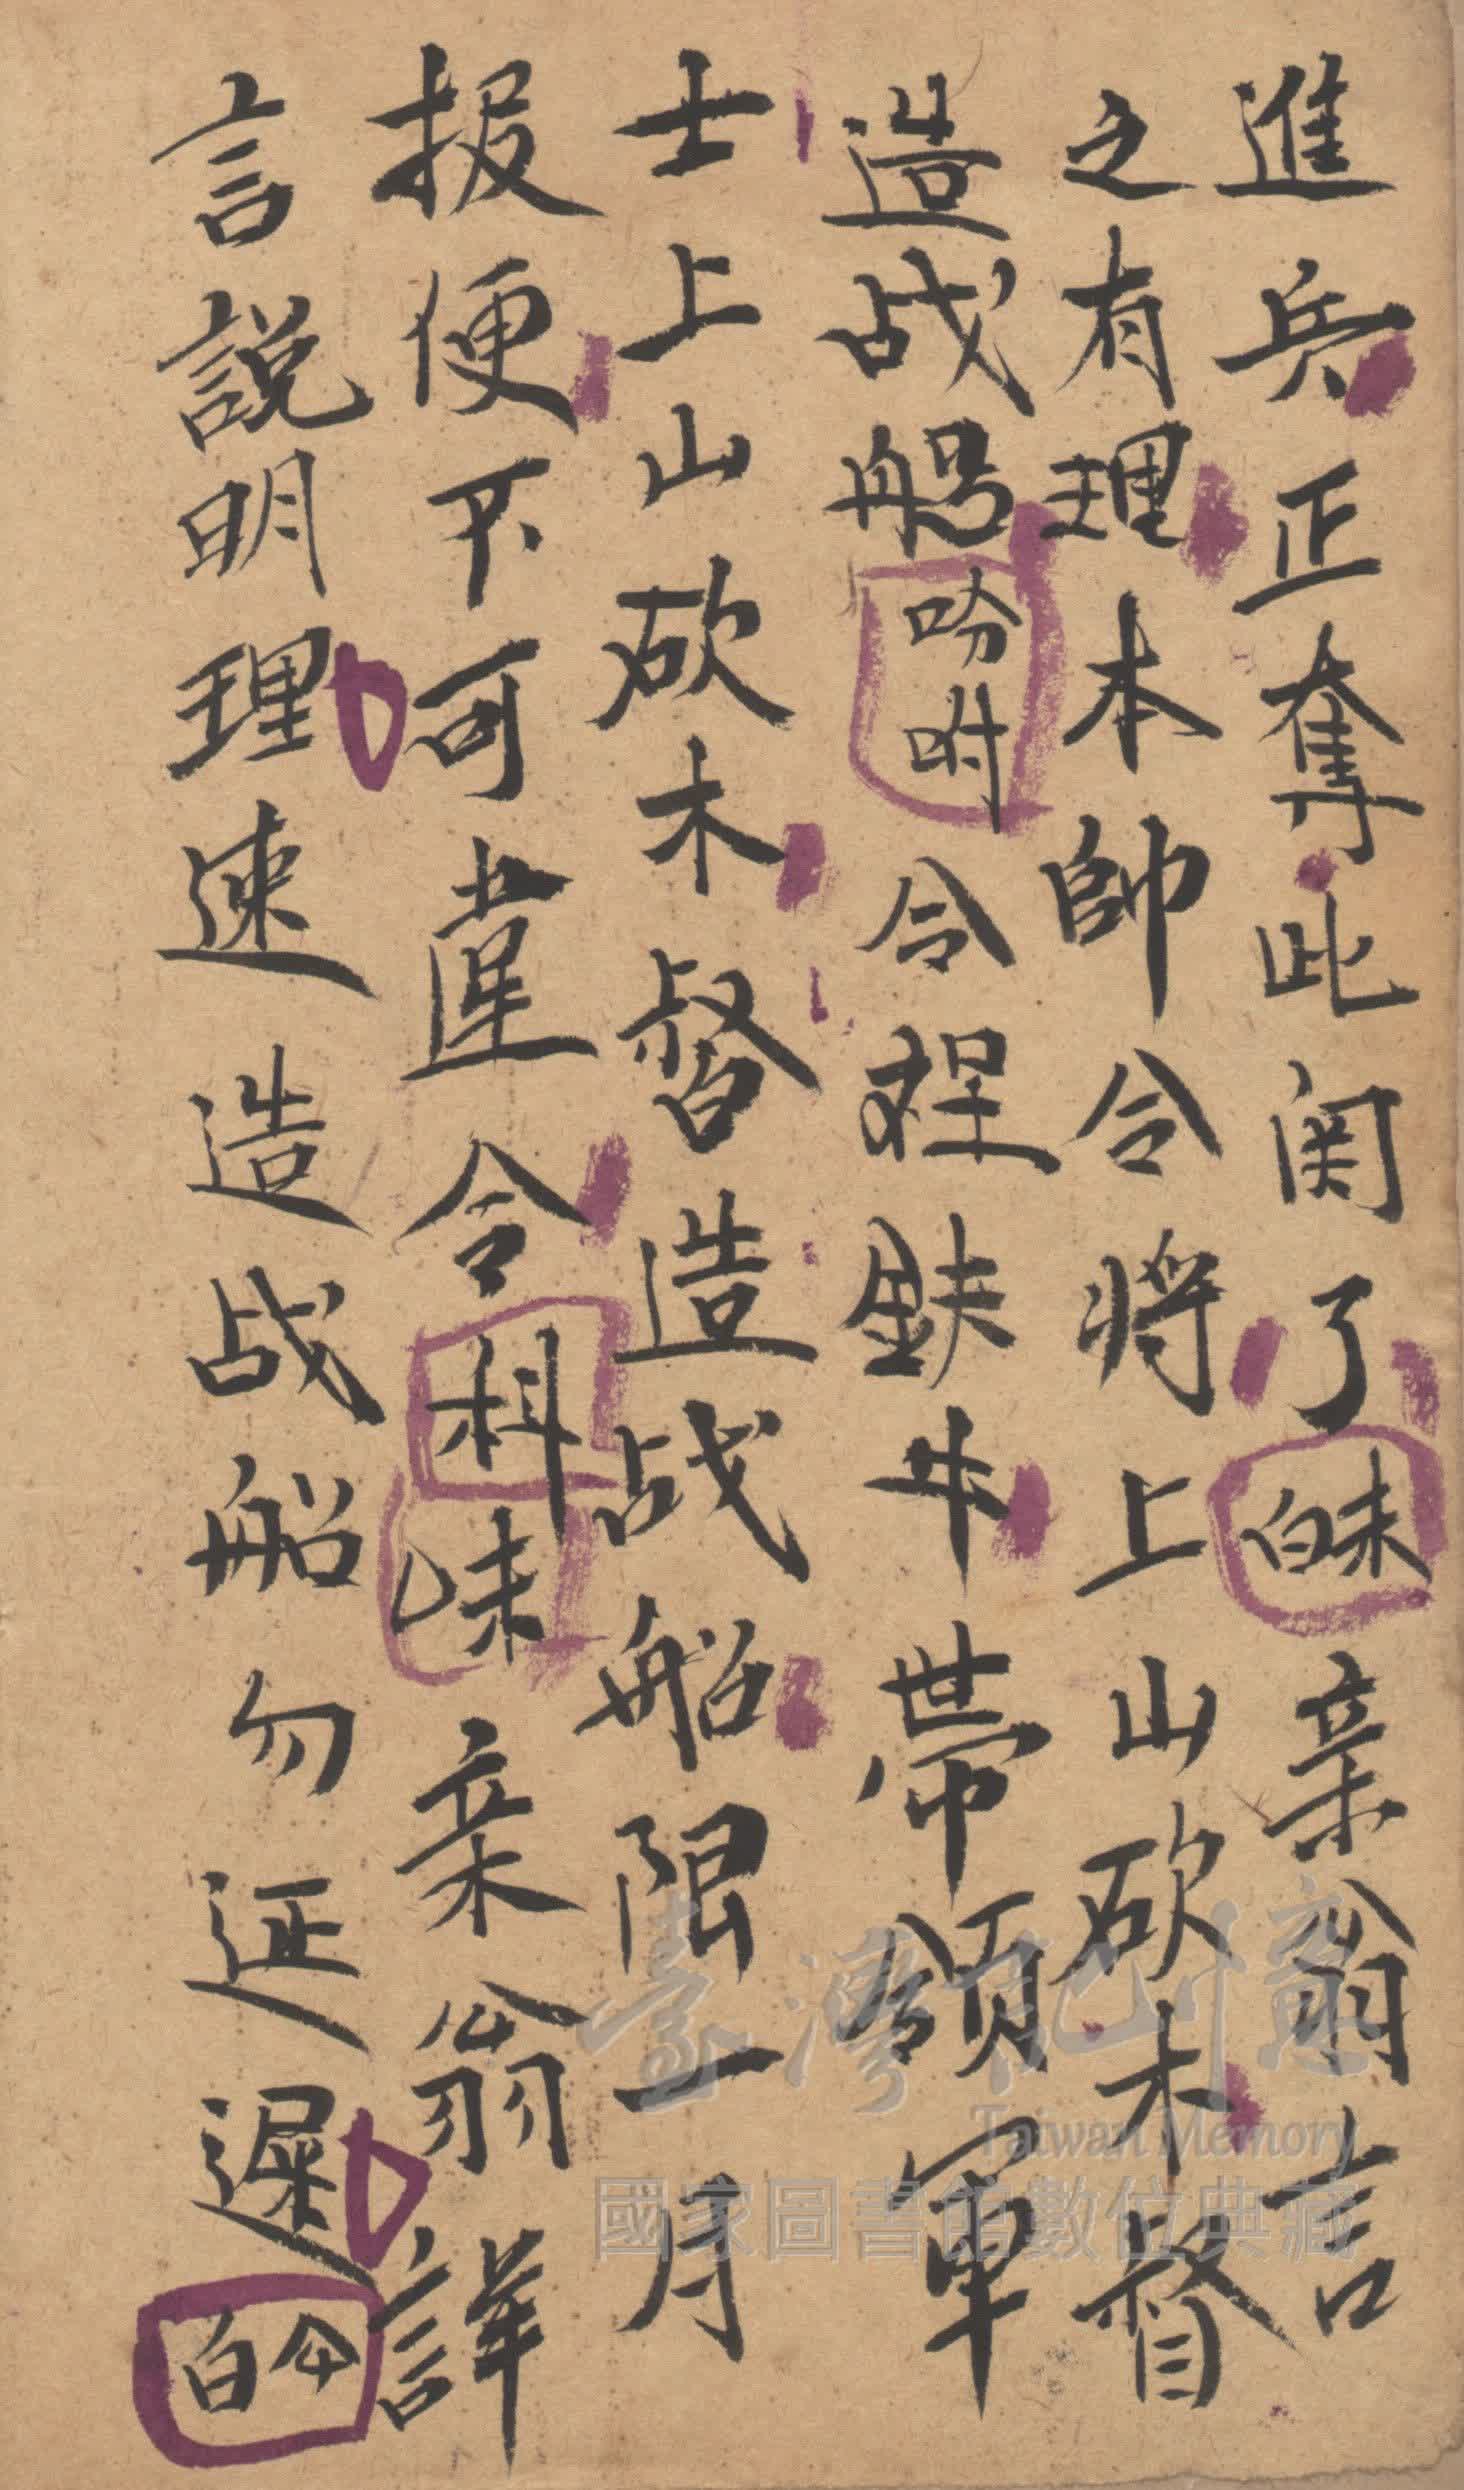 進兵正奪此関了白末亲翁言
之有理本帥令將上山砍木督
造战船吩咐令程鉄牛帶領軍
士上山砍木督造战船限一月
报便不可違令科味亲翁詳
言説明理速造战船勿延遲白仐
臺灣記憶
Taiwan Memory
國家圖書館數位典藏